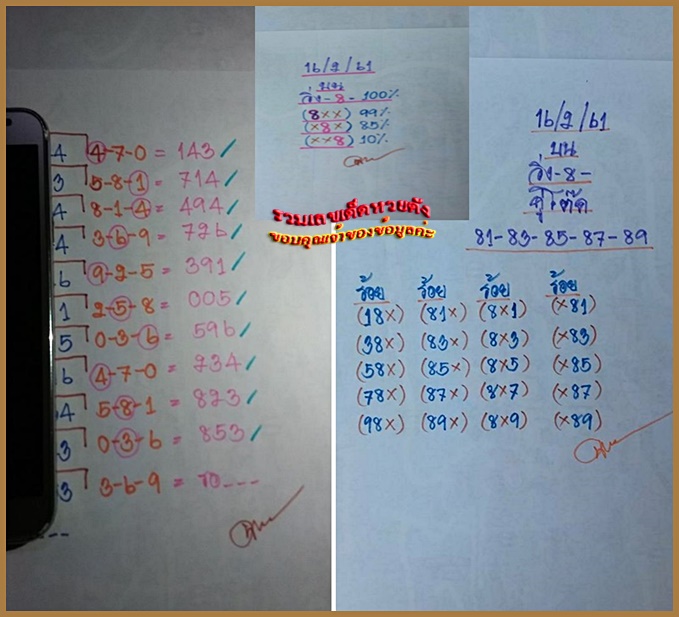 4 4-7-0 = 143 /
3 5-8-1 = 714 /
4 8-1-4 = 494 /
4 3-6-9 = 726 /
6 9-2-5 = 391 /
1 2-5-8 = 005 /
5 0-3-6 = 596 /
6 4-7-0 = 234 /
4 5-8-1 = 823 /
3 0-3-6 = 853 /
3 3-6-9 = ---
16/2/61
บน
วิ่ง-8- 100%
(8××) 99%
(×8×) 85%
(××8) 10%
รวมเลขเด็ดหวยดัง
ขอบคุณเจ้าของข้อมูลค่ะ
16/2/61
บน
วิ่ง-8-
คู่โต๊ด
81-83-85-87-89
ร้อย ร้อย ร้อย ร้อย
(18×) (81×) (8×1) (×81)
(38×) (83×) (8×3) (×83)
(58×) (85×) (8×5) (×85)
(78×) (87×) (8×7) (×87)
(98×) (89×) (8×9) (×89)